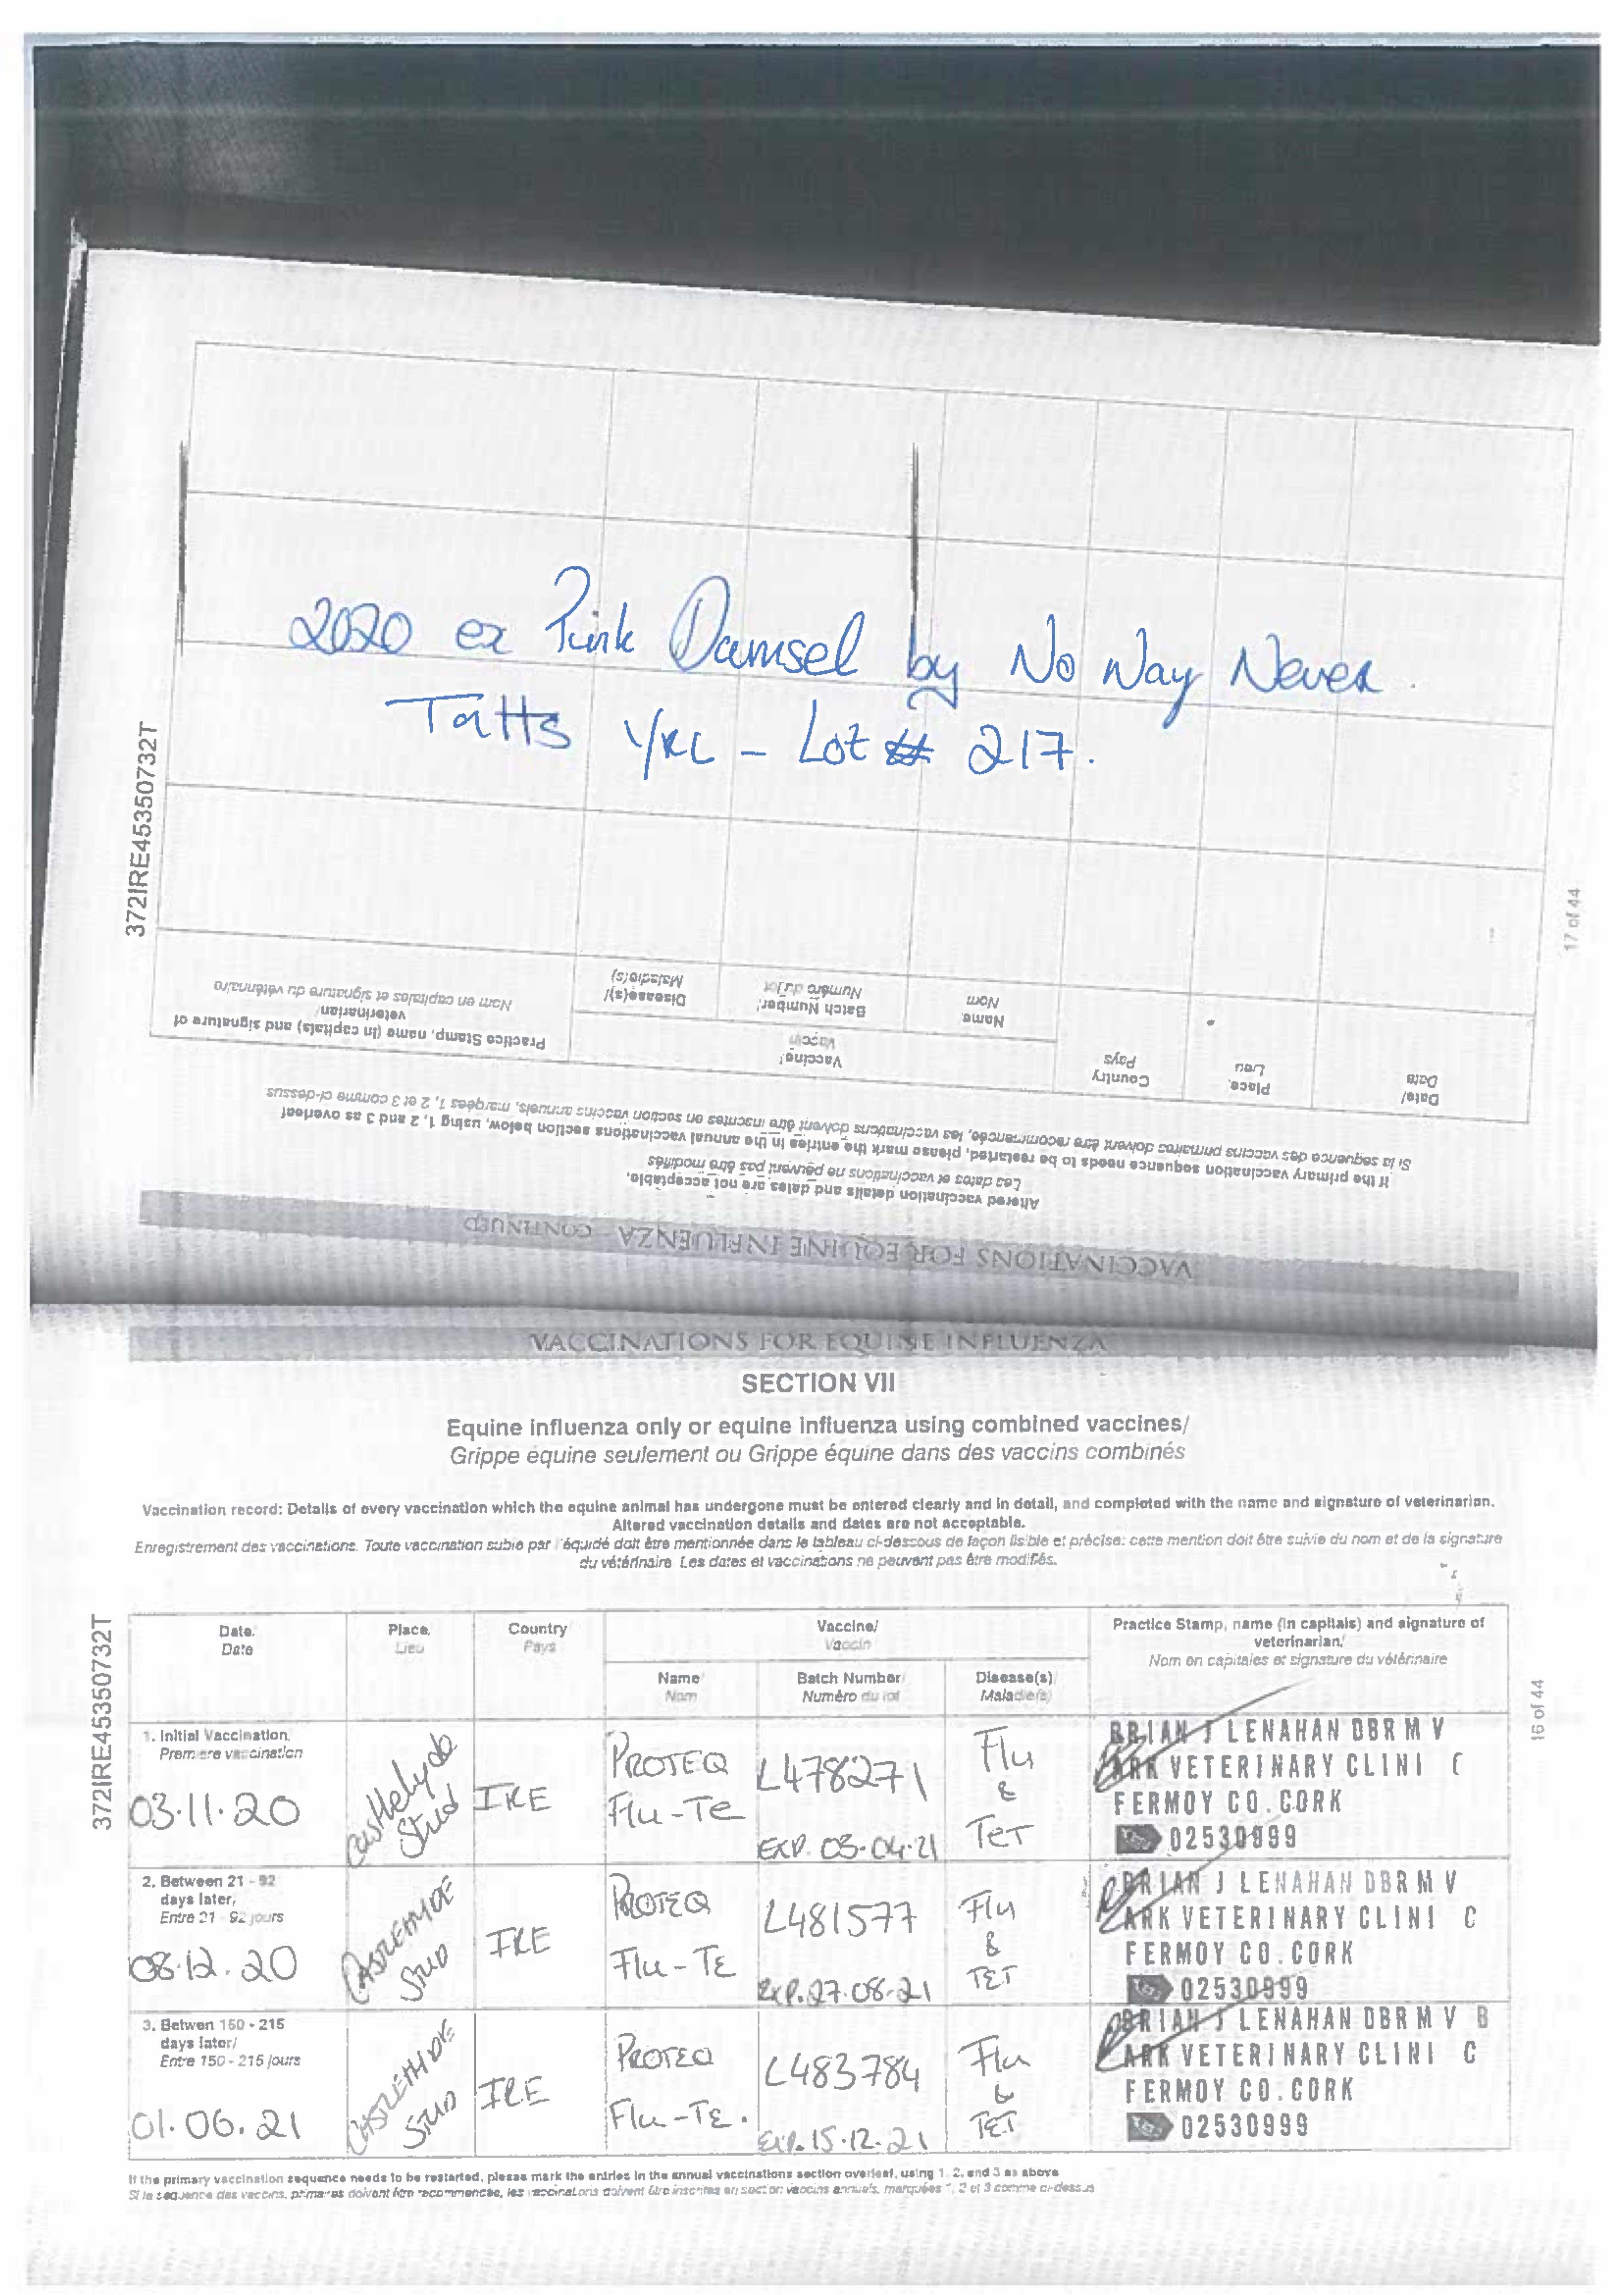 2020 ex Pink Damsel by No Nay Never.
Tatts YRL - Lot # 217.
372IRE45350732T
17 of 44
VACCINATIONS FOR EQUINE INFLUENZA - CONTINUED
Altered vaccination details and dates are not acceptable.
Les dates et vaccinations ne peuvent pas être modifiés
If the primary vaccination sequence needs to be restarted, please mark the entries in the annual vaccinations section below, using 1, 2 and 3 as overleaf
Si la sequence des vaccins primaires doivent être recommencée, les vaccinations doivent être inscrites en section vaccins annuels, marqées 1, 2 et 3 comme ci-dessus
Date/
Date
Place,
Lieu
Country
Pays
Vaccine/
Vaccin
Name
Nom
Batch Number/
Numéro du lot
Disease(s)/
Maladie(s)
Practice Stamp, name (in capitals) and signature of
veterinarian/
Nom en capitales et signature du vétérinaire
VACCINATIONS FOR EQUINE INFLUENZA
SECTION VII
Equine influenza only or equine influenza using combined vaccines/
Grippe équine seulement ou Grippe équine dans des vaccins combinés
Vaccination record: Details of every vaccination which the equine animal has undergone must be entered clearly and in detail, and completed with the name and signature of veterinarian.
Altered vaccination details and dates are not acceptable.
Enregistrement des vaccinations. Toute vaccination subie par l'équidé doit être mentionnée dans le tableau ci-dessous de façon lisible et précise: cette mention doit être suivie du nom et de la signature
du vétérinaire Les dates et vaccinations ne peuvent pas être modifiés.
372IRE45350732T
16 of 44
Date/
Date
Place,
Lieu
Country
Pays
Vaccine/
Vaccin
Name/
Nom
Batch Number/
Numéro du lot
Disease(s)/
Maladie(s)
Practice Stamp, name (in capitals) and signature of
veterinarian/
Nom en capitales et signature du vétérinaire
1. Initial Vaccination,
Premiere vaccination
03.11.20
Castlehyde
Stud
IRE
PROTEQ
Flu-Te
L478271
EXP. 03.04.21
Flu
&
TET
BRIAN J LENAHAN DBR M V
ARK VETERINARY CLINI C
FERMOY CO.CORK
02530999
2. Between 21 - 92
days later,
Entre 21 - 92 jours
08.12.20
CASTLEHYDE
STUD
IRE
PROTEQ
Flu-TE
L481577
EXP. 27.08.21
Flu
&
TET
BRIAN J LENAHAN DBR M V
ARK VETERINARY CLINI C
FERMOY CO.CORK
02530999
3. Betwen 150 - 215
days later/
Entre 150 - 215 jours
01.06.21
CASTLEHYDE
STUD
IRE
PROTEQ
Flu-TE.
L483784
EXP. 15.12.21
Flu
&
TET
BRIAN J LENAHAN DBR M V B
ARK VETERINARY CLINI C
FERMOY CO.CORK
02530999
If the primary vaccination sequence needs to be restarted, please mark the entries in the annual vaccinations section overleaf, using 1, 2, and 3 as above
Si la sequence des vaccins, primaires doivent être recommencée, les vaccinations doivent être inscrites en section vaccins annuels, marquées 1, 2 et 3 comme ci-dessus